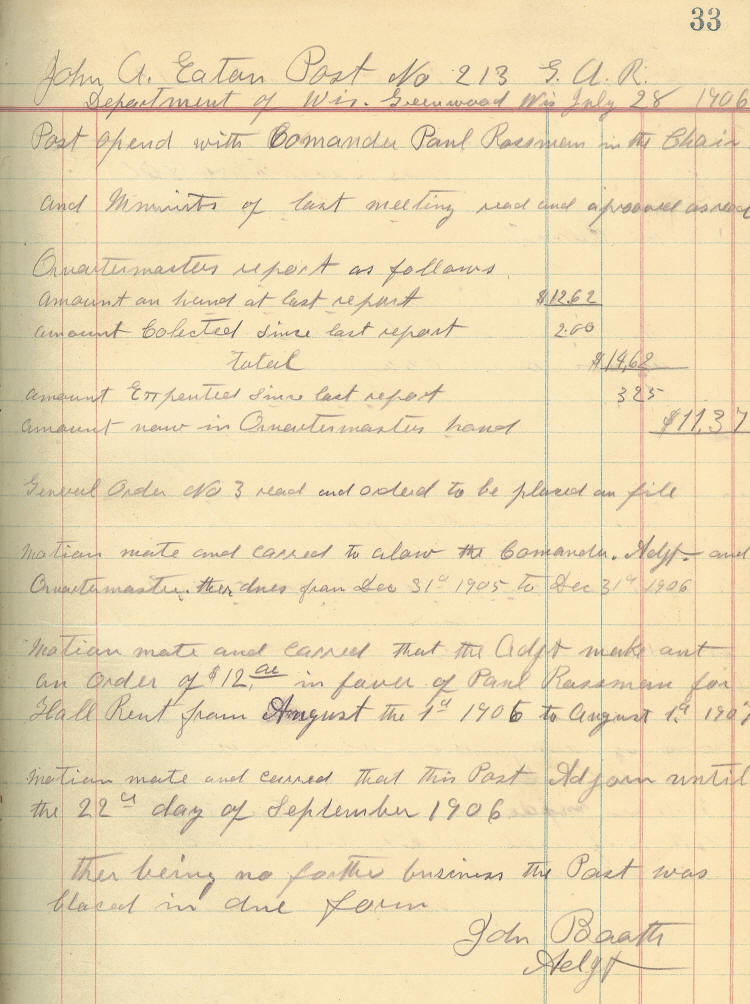 33
John A. Eaton Post No 213 G. A. R.
Department of Wis. Greenwood Wis July 28 1906
Post opend with Comander Paul Rossman in the Chair
and Mminits of last meeting read and aprooved as read
Quartermasters report as follows
amount on hand at last report $12.62
amount Colected since last report 2.00
Total $14.62
amount Expented since last report 325
amount now in Quartermasters hand $11.37
General Order No 3 read and orderd to be placed on file
Motion mate and carred to alow the Comander. Adjt- and
Quartermaster. ther dues from Dec 31st 1905 to Dec 31st 1906
Motion mate and carred that the Adjt make out
an Order of $12.00 in faver of Paul Rossman for
Hall Rent from August the 1st 1906 to August 1st 1907
Motion mate and carred that this Post Adjorn until
the 22nd day of September 1906
ther being no forther business the Post was
claced in due form
John Baath
Adjt